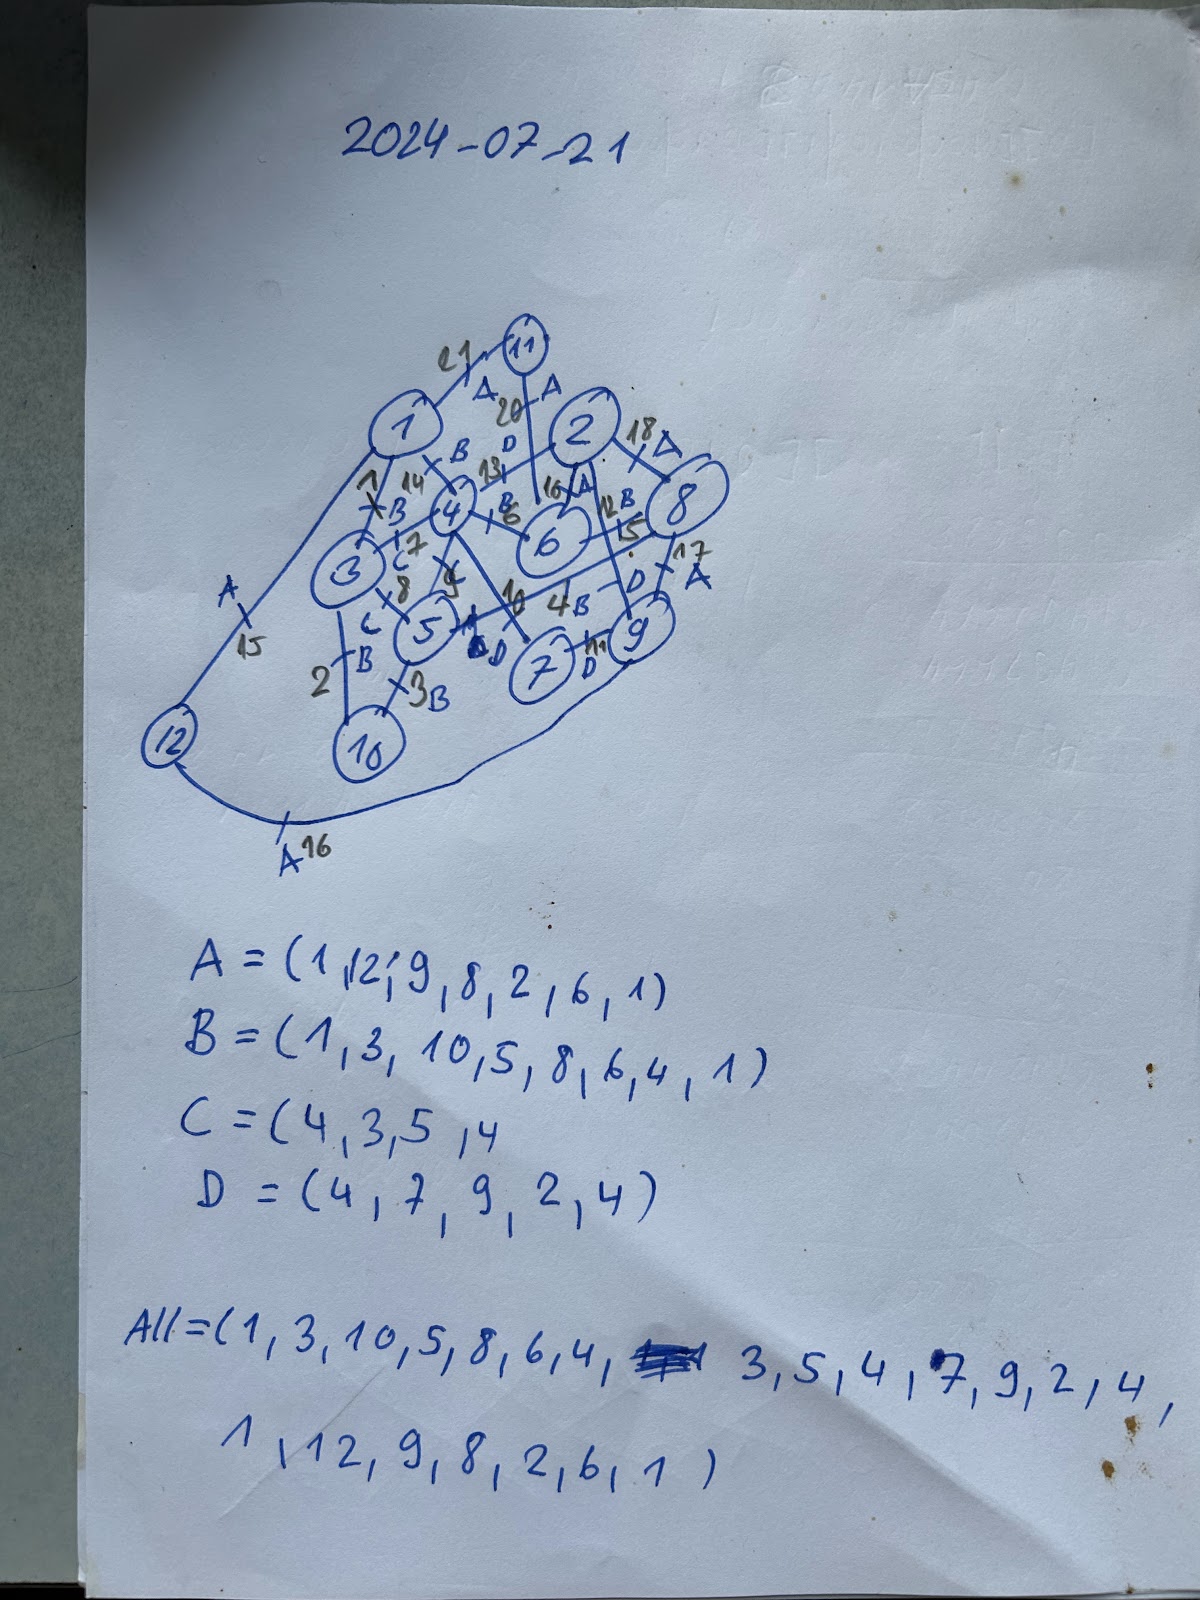 2024-07-21
21 11
A A
20
1 2
18 A
B D
14 13
1 B 4 B 6 16 A 12 B 8
7 6 5
3 C 17
8 9 10 4 B D A
A C 5 D 9
15 7 11
2 B 3 B D
12 10
A 16
A = (1,12,9,8,2,6,1)
B = (1,3,10,5,8,6,4,1)
C = (4,3,5,4
D = (4,7,9,2,4)
All=(1,3,10,5,8,6,4, 3,5,4,7,9,2,4,
1,12,9,8,2,6,1)